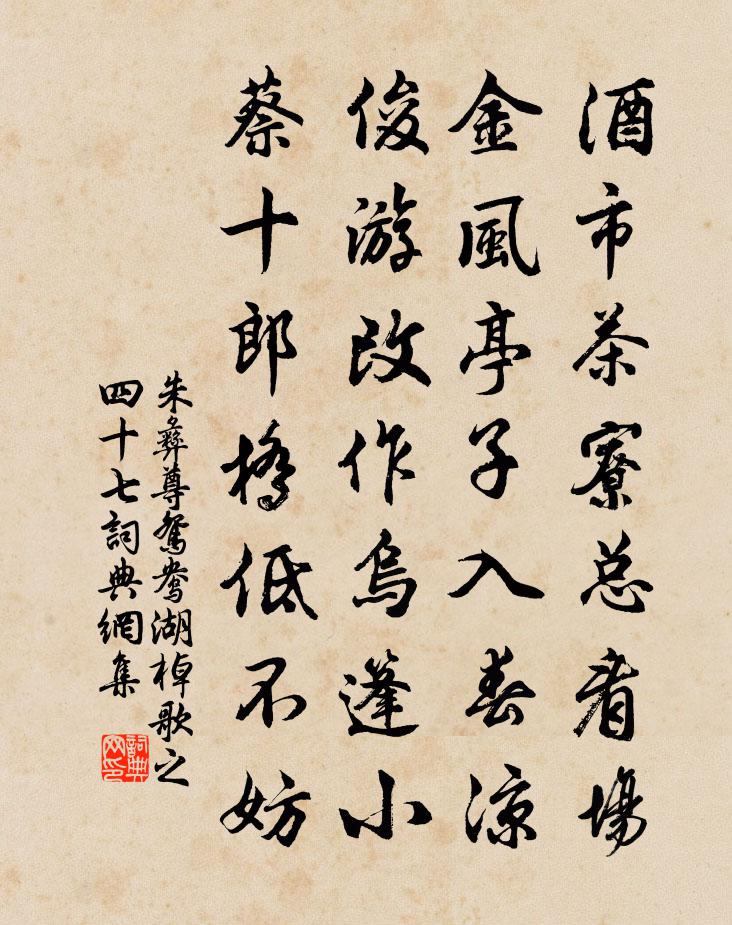 酒市茶寮总看場
金風亭子入春涼
俊游改作烏篷小
蔡十郎橋低不妨
朱彝尊鴛鴦湖棹歌之
四十七詞典網集
詞典
网印